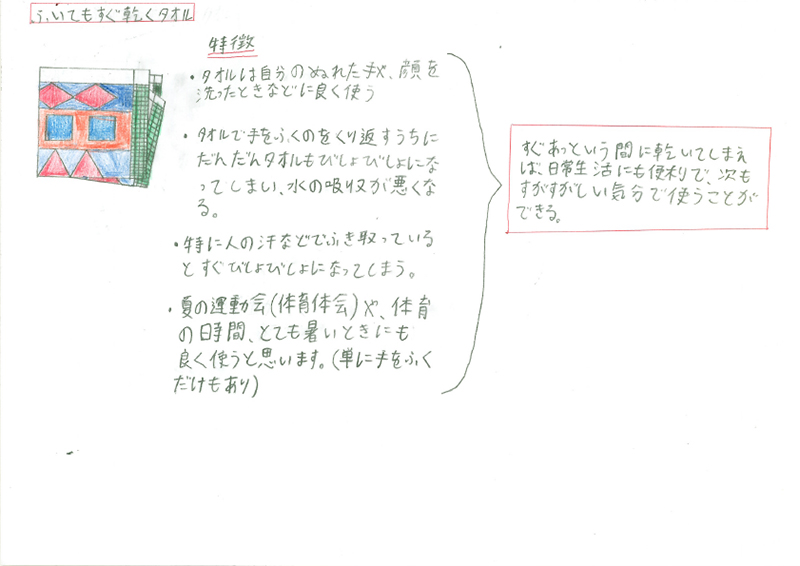 ふいてもすぐ乾くタオル
特徴
・タオルは自分のぬれた手や、顔を
洗ったときなどに良く使う
・タオルで手をふくのをくり返すうちに
だんだんタオルもびしょびしょにな
ってしまい、水の吸収が悪くな
る。
・特に人の汗などでふき取っている
とすぐびしょびしょになってしまう。
・夏の運動会(体育体会)や、体育
の日時間、とても暑いときにも
良く使うと思います。(単に手をふく
だけもあり)
すぐあっという間に乾いてしまえ
ば、日常生活にも便利で、次も
すがすがしい気分で使うことが
できる。